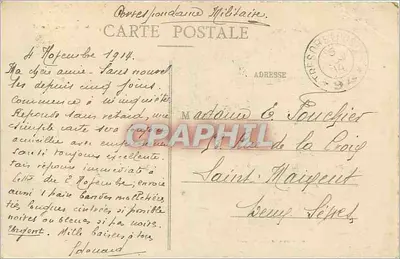 Correspondance Militaire.
CARTE POSTALE
ADRESSE
4 Novembre 1914.
Ma chère amie. Sans nouvel
les depuis cinq jours.
Commence à m'inquiéter
Réponse sans retard, une
simple carte
santé toujours excellente.
Fais réponse immédiate à
du 2 Novembre, envoie
aussi 1 paire bandes molletiè
res, longues cintrées si possible
noires ou bleues si pas noires.
Urgent. Mille baisers à tous
Edouard
Madame E. Pouchier
de la Croix
Saint-Maixent
Deux Sèvres
CPAPHIL